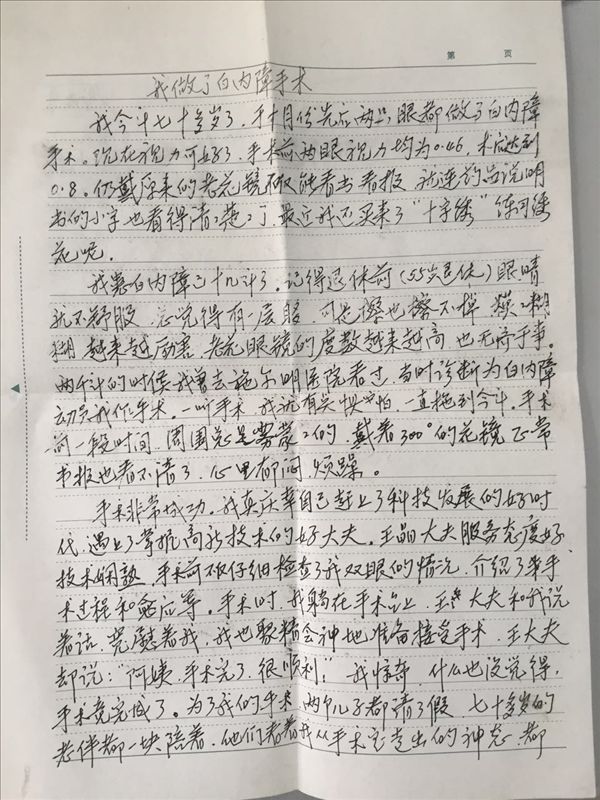 第 页
我做了白内障手术
我今年七十多岁了,年十月份先后两只眼都做了白内障
手术。现在视力可好了,手术前两眼视力均为0.46,术后达到
0.8。仍戴原来的老花镜不仅能看书看报,就连药品说明
书的小字也看得清清楚楚了,最近我还买来了“十字绣”练习绣
花呢。
我患白内障已十几年了。记得退休前(55岁退休)眼睛
就不舒服,总觉得有一层眵,可是擦也擦不掉,模模糊
糊越来越厉害,老花眼镜的度数越来越高,也无济于事。
两年的时候我曾去施尔明医院看过,当时诊断为白内障
动员我作手术。一听手术,我就有点惧怕,一直拖到今年。手术
前一段时间,周围总是雾蒙蒙的,戴着300°的花镜,正常
书报也看不清了,心里郁闷、烦躁。
手术非常成功,我真庆幸自己赶上了科技发展的好时
代,遇上了掌握高新技术的好大夫。王晶大夫服务态度好、
技术娴熟,手术前不仅仔细检查了我双眼的情况,介绍了手
术过程和。手术时,我躺在手术台上,王大夫和我说
着话,安慰着我,我也聚精会神地准备接受手术,王大夫
却说:“阿姨,手术完了,很顺利!”我惊奇,什么也没觉得,
手术竟完成了。为了我的手术,两个儿子都请了假,七十多岁的
老伴都一块陪着,他们看着我从手术室走出的神态,都